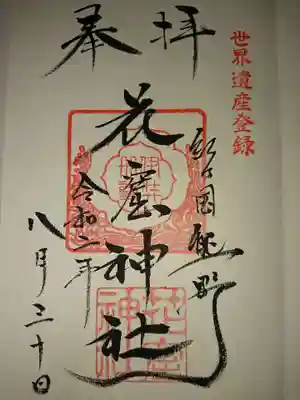 世界遺産登録
奉拝
紀国熊野
花窟神社
令和二年
八月三十日
花窟
神社